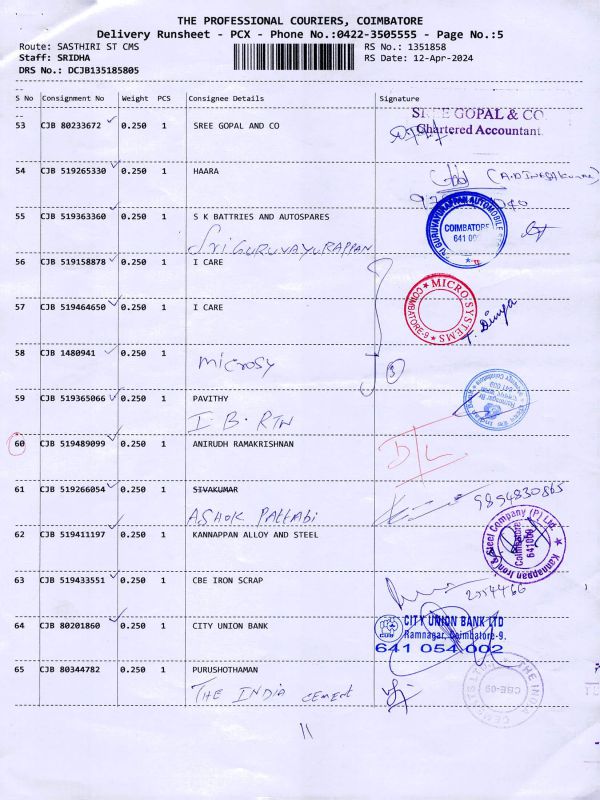 THE PROFESSIONAL COURIERS, COIMBATORE
Delivery Runsheet - PCX - Phone No.:0422-3505555 - Page No.:5
Route: SASTHIRI ST CMS RS No.: 1351858
Staff: SRIDHA RS Date: 12-Apr-2024
DRS No.: DCJB135185805
S No Consignment No Weight PCS Consignee Details Signature
SREE GOPAL & CO
53 CJB 80233672 0.250 1 SREE GOPAL AND CO
Chartered Accountant
54 CJB 519265330 0.250 1 HAARA
55 CJB 519363360 0.250 1 S K BATTRIES AND AUTOSPARES
GURUVAYURAPPAN AUTOMOBILE
COIMBATORE
Sri GURUVAYURAPPAN
56 CJB 519158878 0.250 1 I CARE
57 CJB 519464650 0.250 1 I CARE
MICRO SYSTEMS
COIMBATORE-9
T. Divya
58 CJB 1480941 0.250 1
microsy
3
59 CJB 519365066 0.250 1 PAVITHY
I.B. RTN
60 CJB 519489099 0.250 1 ANIRUDH RAMAKRISHNAN
D/L
61 CJB 519266054 0.250 1 SIVAKUMAR
9894830865
ASHOK PATTABI
62 CJB 519411197 0.250 1 KANNAPPAN ALLOY AND STEEL
Kannappan Iron & Steel Company (P) Ltd.
Coimbatore
641009
63 CJB 519433551 0.250 1 CBE IRON SCRAP
64 CJB 80201860 0.250 1 CITY UNION BANK
CITY UNION BANK LTD
Ramnagar, Coimbatore-9.
641 054 002
65 CJB 80344782 0.250 1 PURUSHOTHAMAN
THE INDIA CEMENT
THE INDIA CEMENTS LTD
CBE-09
11